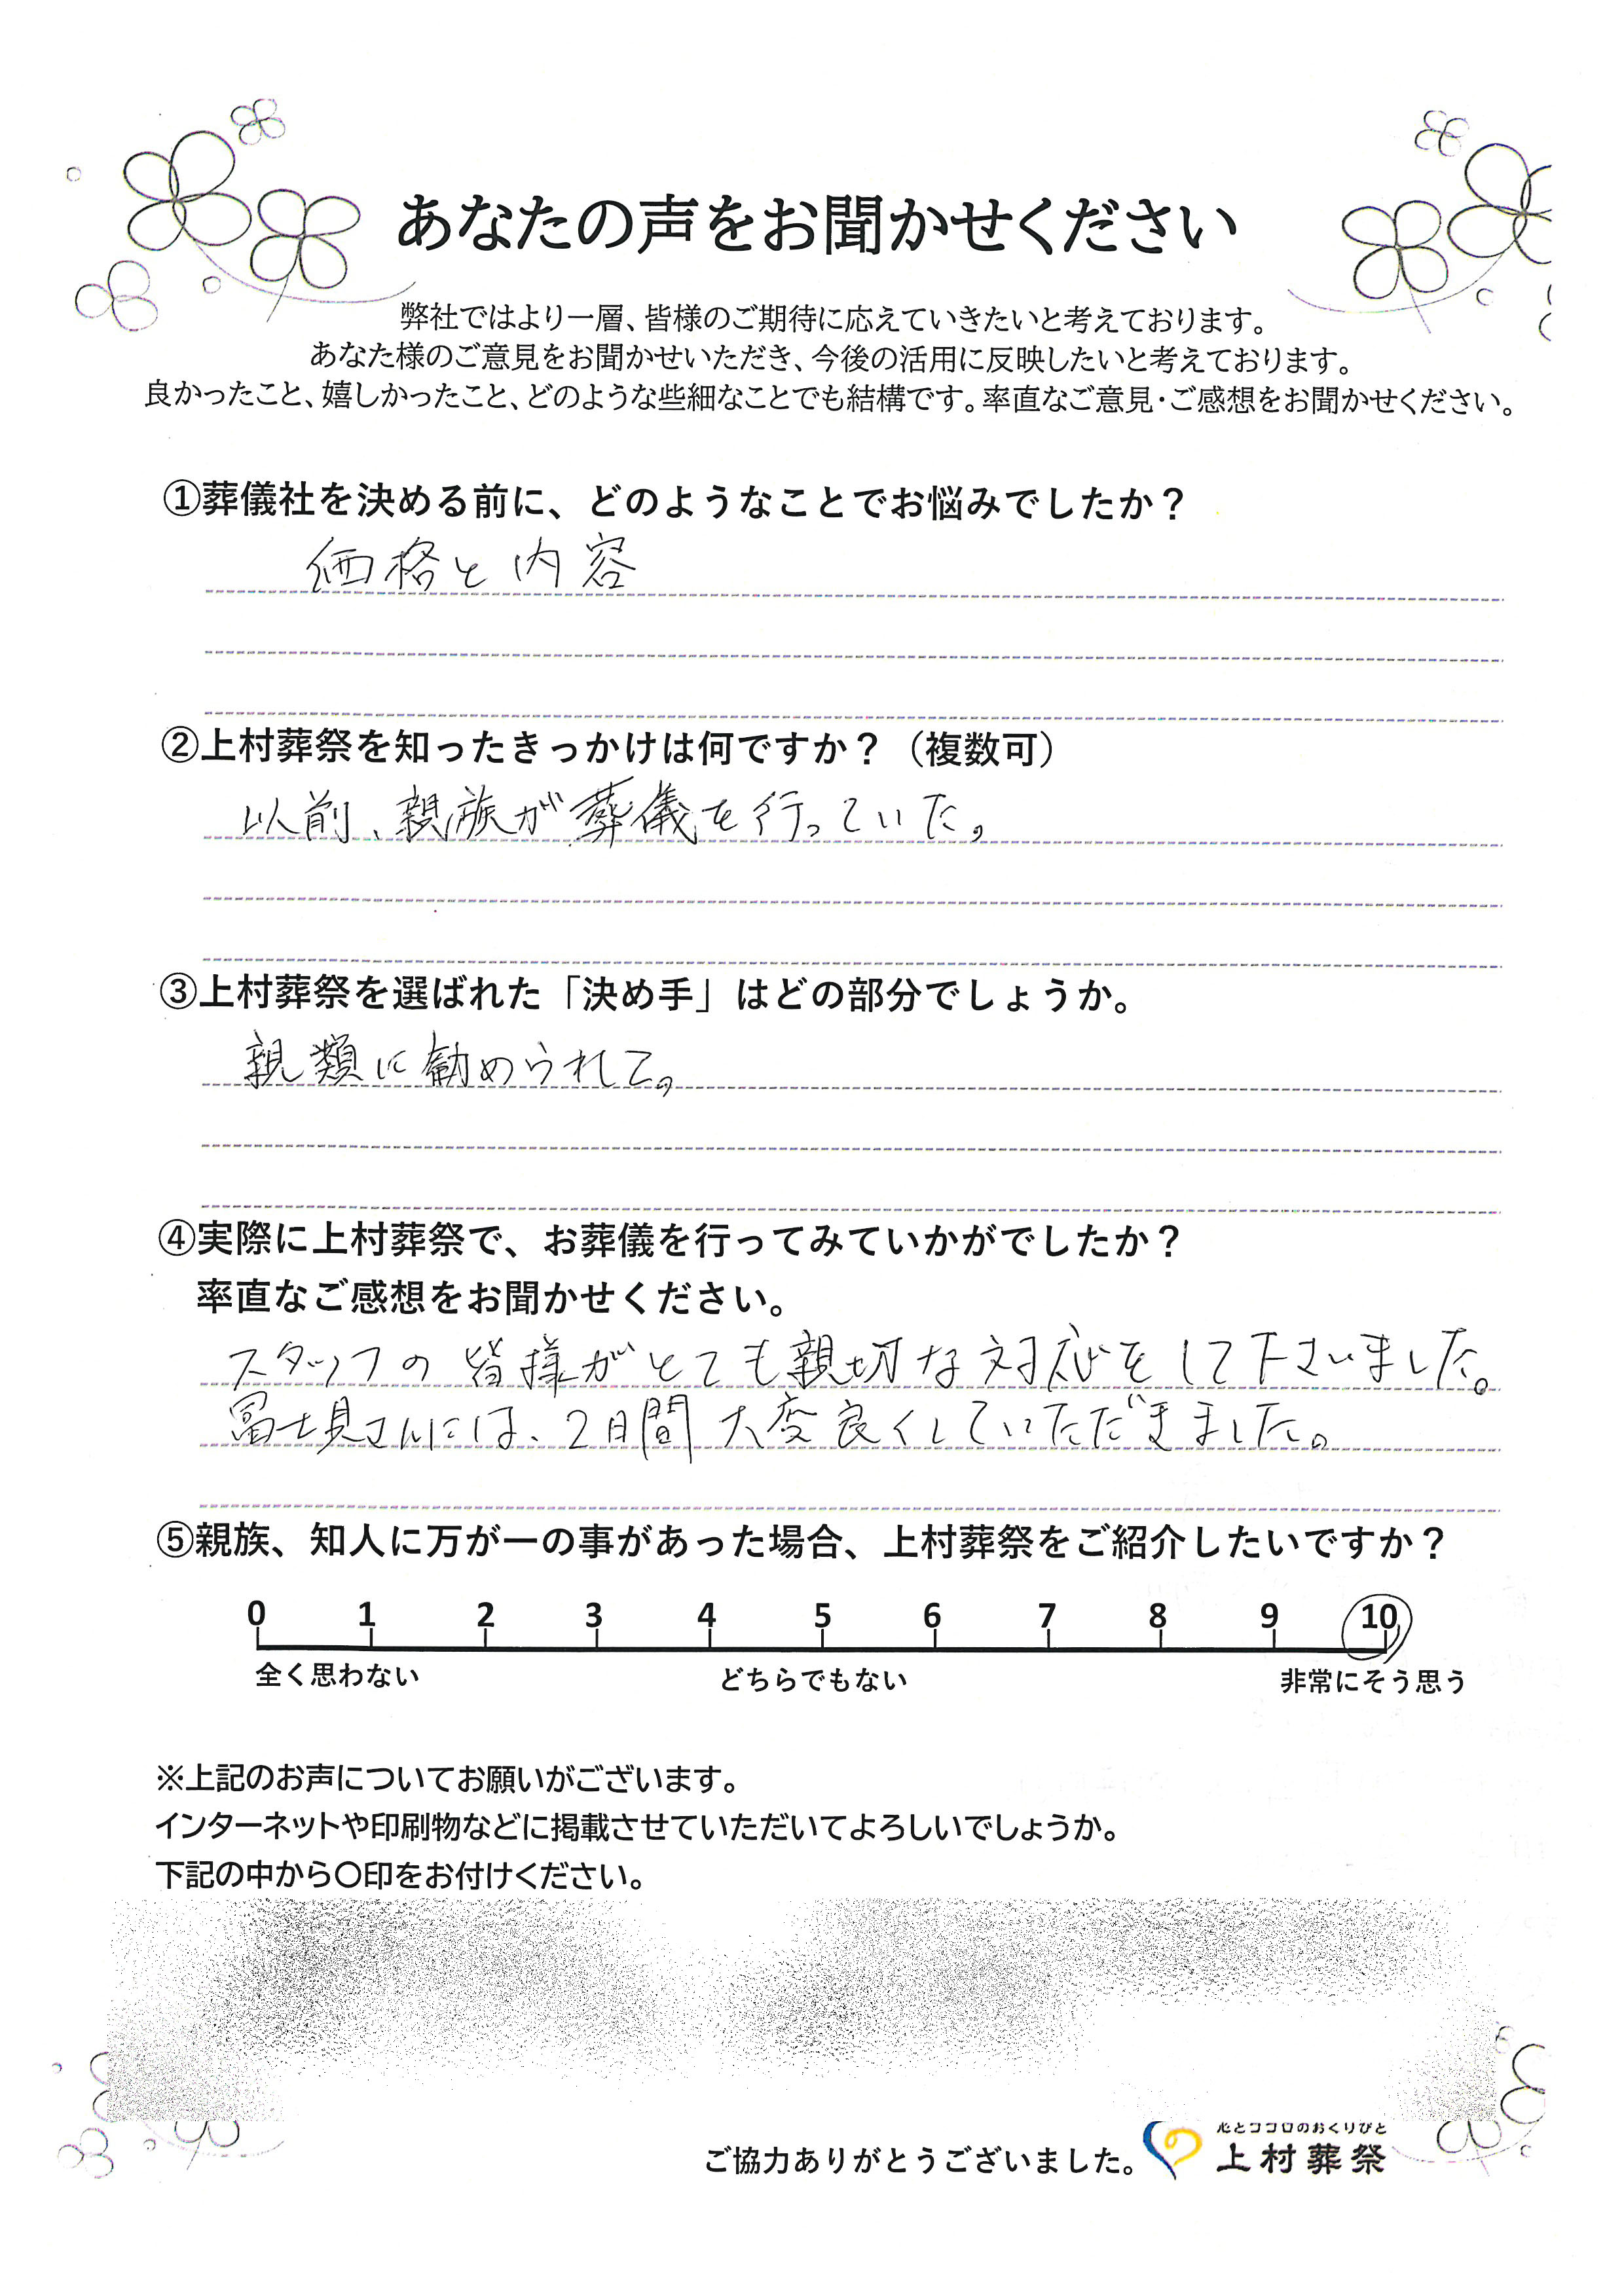 あなたの声をお聞かせください
弊社ではより一層、皆様のご期待に応えていきたいと考えております。
あなた様のご意見をお聞かせいただき、今後の活用に反映したいと考えております。
良かったこと、嬉しかったこと、どのような些細なことでも結構です。率直なご意見・ご感想をお聞かせください。
①葬儀社を決める前に、どのようなことでお悩みでしたか？
価格と内容
②上村葬祭を知ったきっかけは何ですか？（複数可）
以前、親族が葬儀を行っていた。
③上村葬祭を選ばれた「決め手」はどの部分でしょうか。
親類に勧められて。
④実際に上村葬祭で、お葬儀を行ってみていかがでしたか？
率直なご感想をお聞かせください。
スタッフの皆様がとても親切な対応をして下さいました。
冨士見さんには、2日間大変良くしていただきました。
⑤親族、知人に万が一の事があった場合、上村葬祭をご紹介したいですか？
0 1 2 3 4 5 6 7 8 9 10
全く思わない どちらでもない 非常にそう思う
※上記のお声についてお願いがございます。
インターネットや印刷物などに掲載させていただいてよろしいでしょうか。
下記の中から〇印をお付けください。
心とココロのおくりびと
ご協力ありがとうございました。 上村葬祭